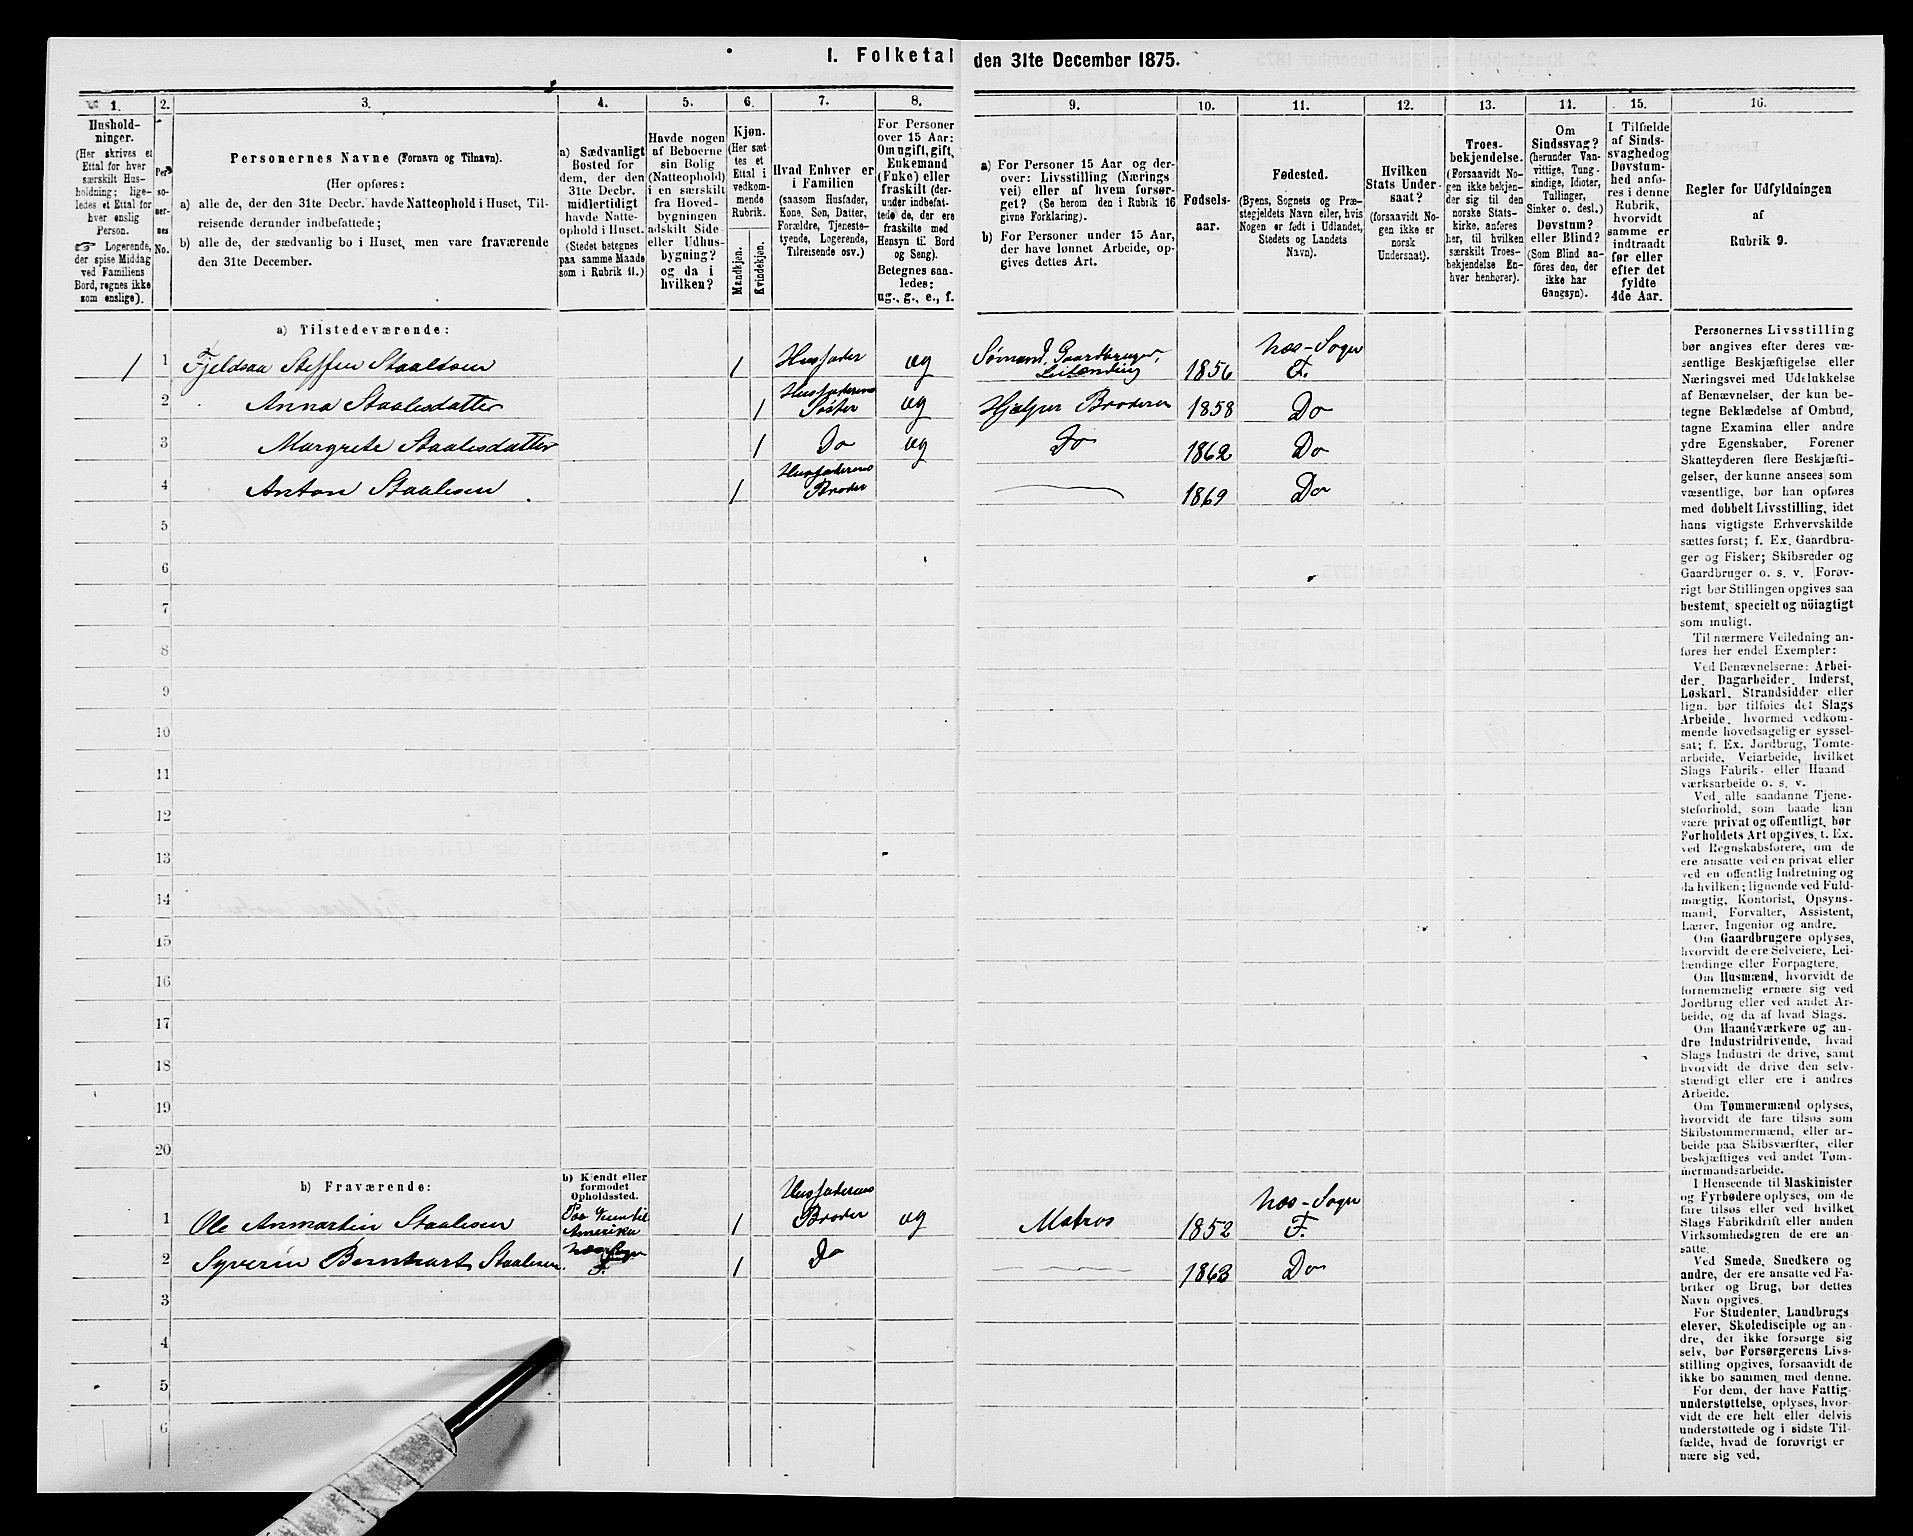 I. Folketal den 31te December 1875.
1.
Hushold-
ninger.
(Her skrives et
Ettal for hver
særskilt Hus-
holdning; lige-
ledes et Ettal for
hver enslig
Person.
Logerende,
der spise Middag
ved Familiens
Bord, regnes ikke
som enslige).
2.
Per-
so-
ner-
nes
No.
3.
Personernes Navne (Fornavn og Tilnavn).
(Her opføres:
a) alle de, der den 31te Decbr. havde Natteophold i Huset, Til-
reisende derunder indbefattede;
b) alle de, der sædvanlig bo i Huset, men vare fraværende
den 31te December.
4.
a) Sædvanligt
Bosted for
dem, der den
31te Decbr.
midlertidigt
havde Natte-
ophold i Huset.
(Stedet betegnes
paa samme Maade
som i Rubrik 11.)
5.
Havde nogen
af Beboerne
sin Bolig
(Natteophold)
i en særskilt
fra Hoved-
bygningen
adskilt Side-
eller Udhus-
bygning?
og da i
hvilken?
6.
Kjøn.
(Her sæt-
tes et
Ettal i
vedkom-
mende
Rubrik.
Mandkjøn.
Kvindekjøn.
7.
Hvad Enhver er
i Familien
(saasom Husfader,
Kone, Søn, Datter,
Forældre, Tjeneste-
tyende, Logerende,
Tilreisende osv.)
8.
For Personer
over 15 Aar:
Om ugift, gift,
Enkemand
(Enke) eller
fraskilt (der-
under indbefat-
tede de, der ere
fraskilte med
Hensyn til Bord
og Seng).
Betegnes saa-
ledes:
ug., g., e., f.
9.
a) For Personer 15 Aar og der-
over: Livsstilling (Nærings-
vei) eller af hvem forsør-
get? (Se herom den i Rubrik 16
givne Forklaring).
b) For Personer under 15 Aar,
der have lønnet Arbeide, op-
gives dettes Art.
10.
Fødsels-
aar.
11.
Fødested.
(Byens, Sognets og Præ-
stegjeldets Navn eller, hvis
Nogen er født i Udlandet,
Stedets og Landets
Navn).
12.
Hvilken
Stats Under-
saat?
(forsaavidt No-
gen ikke er
norsk
Undersaat).
13.
Troes-
bekjendelse.
(Forsaavidt No-
gen ikke bekjen-
der sig til den
norske Stats-
kirke, anføres
her, til hvilken
særskilt Troes-
bekjendelse En-
hver henhører).
14.
Om
Sindssvag?
(herunder Van-
vittige, Tung-
sindige, Idioter,
Tullinger,
Sinker o. desl.)
Døvstum?
eller Blind?
(Som Blind an-
føres den, der
ikke har
Gangsyn).
15.
I Tilfælde
af Sinds-
svaghed og
Døvstum-
hed anfø-
res i denne
Rubrik,
hvorvidt
samme er
indtraadt
før eller
efter det
fyldte
4de Aar.
16.
Regler for Udfyldningen
af
Rubrik 9.
a) Tilstedeværende:
1 1 Fjeldsaa Steffen Staalesen 1 Husfader ug Sømand, Gaardbruger, Leilænding 1856 Næs-Sogn F.
2 Anna Staalesdatter 1 Husfaderens Søster ug Hjelper Broderen 1858 Do
3 Margrete Staalesdatter 1 Do ug Do 1862 Do
4 Anton Staalesen 1 Husfaderens Broder 1869 Do
5
6
7
8
9
10
11
12
13
14
15
16
17
18
19
20
b) Fraværende:
b) Kjendt eller
formodet
Opholdssted.
1 Ole Anmartin Staalesen Paa til Amerika 1 Husfaderens Broder ug Matros 1852 Næs-Sogn F.
2 Syverin Bernhart Staalesen Næs Sogn F. 1 Do 1863 Do
3
4
5
6
Personernes Livsstilling
bør angives efter deres væ-
sentlige Beskjæftigelse eller
Næringsvei med Udelukkelse
af Benævnelser, der kun be-
tegne Beklædelse af Ombud,
tagne Examina eller andre
ydre Egenskaber. Forener
Skatteyderen flere Beskjæfti-
gelser, der kunne ansees som
væsentlige, bør han opføres
med dobbelt Livsstilling, idet
hans vigtigste Erhvervskilde
sættes først; f. Ex. Gaardbru-
ger og Fisker; Skibsreder og
Gaardbruger o. s. v. Forøv-
rigt bør Stillingen opgives saa
bestemt, specielt og nöiagtigt
som muligt.
Til nærmere Veiledning an-
føres her endel Exempler:
Ved Benævnelserne: Arbei-
der, Dagarbeider, Inderst,
Løskarl, Strandsidder eller
lign. bør tilføies det Slags
Arbeide, hvormed vedkom-
mende hovedsagelig er syssel-
sat; f. Ex. Jordbrug, Tomte-
arbeide, Veiarbeide, hvilket
Slags Fabrik- eller Haand-
værksarbeide o. s. v.
Ved alle saadanne Tjene-
steforhold, som baade kan
være privat og offentligt, bør
Forholdets Art opgives, t. Ex.
ved Regnskabsførere, om de
ere ansatte ved en privat eller
ved en offentlig Indretning og
da hvilken; lignende ved Fuld-
mægtig, Kontorist, Opsyns-
mand, Forvalter, Assistent,
Lærer, Ingeniør og andre.
Om Gaardbrugere oplyses,
hvorvidt de ere Selveiere, Lei-
lændinge eller Forpagtere.
Om Husmænd, hvorvidt de
fornemmelig ernære sig ved
Jordbrug eller ved andet Ar-
beide, og da af hvad Slags.
Om Haandværkere og an-
dre Industridrivende, hvad
Slags Industri de drive, samt
hvorvidt de drive den selv-
stændigt eller ere i andres
Arbeide.
Om Tømmermænd oplyses,
hvorvidt de fare tilsøs som
Skibstømmermænd, eller ar-
beide paa Skibsværfter, eller
beskjæftiges ved andet Tøm-
mermandsarbeide.
I Henseende til Maskinister
og Fyrbødere oplyses, om de
fare tilsøs eller ved hvilket
Slags Fabrikdrift eller anden
Virksomhedsgren de ere an-
satte.
Ved Smede, Snedkere og
andre, der ere ansatte ved Fa-
briker og Brug, bør dettes
Navn opgives.
For Studenter, Landbrugs-
elever, Skoledisciple og an-
dre, der ikke forsørge sig
selv, bør Forsørgerens Livs-
stilling opgives, forsaavidt de
ikke bo sammen med denne.
For dem, der have Fattig-
understøttelse, oplyses, hvor-
vidt de ere helt eller delvis
understøttede og i sidste Til-
fælde, hvad de forøvrigt er-
nære sig ved.